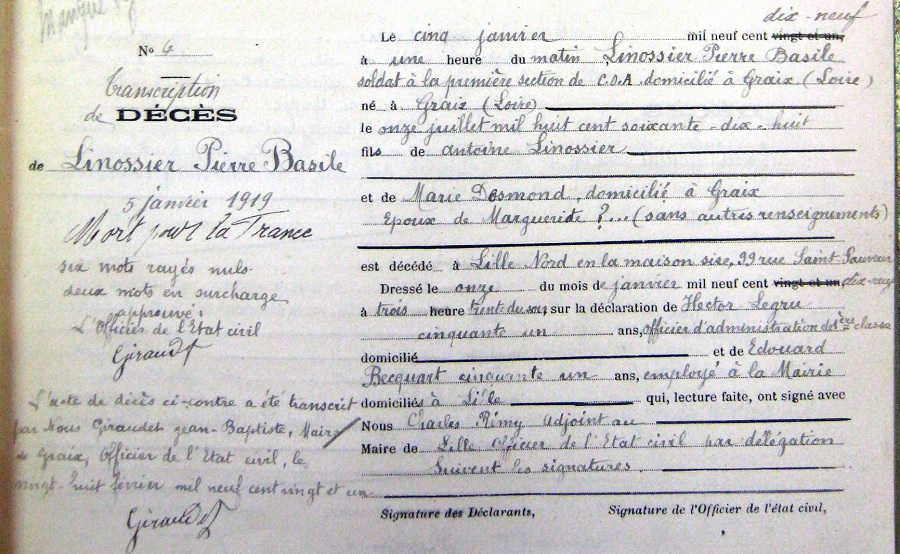 Manque
Nº 6
Transcription
de DÉCÈS
de Linossier Pierre Basile
5 janvier 1919
Mort pour la France
six mots rayés nuls
deux mots en surcharge
approuvé :
L'Officier de l'Etat civil
Giraudet
L'acte de décès ci-contre a été transcrit
par Nous Giraudet Jean-Baptiste, Maire
de Graix, Officier de l'Etat civil, le
vingt-huit février mil neuf cent vingt et un
Giraudet
dix-neuf
Le cinq janvier mil neuf cent vingt et un,
à une heure du matin Linossier Pierre Basile
soldat à la première section de C.O.A domicilié à Graix (Loire)
né à Graix (Loire)
le onze juillet mil huit cent soixante-dix-huit
fils de Antoine Linossier
et de Marie Desmond, domicilié à Graix
Epoux de Margueride ?... (sans autres renseignements)
est décédé à Lille Nord en la maison sise, 99 rue Saint Sauveur
Dressé le onze du mois de janvier mil neuf cent vingt et un dix-
à trois heure trente du soir, sur la déclaration de Hector Legru
cinquante un ans, officier d'administration de 1ère classe
domicilié et de Edouard
Becquart cinquante un ans, employé à la Mairie
domiciliés à Lille qui, lecture faite, ont signé avec
Nous Charles Rémy adjoint au
Maire de Lille Officier de l'Etat civil par délégation
Suivent les signatures.
Signature des Déclarants, Signature de l'Officier de l'état civil,